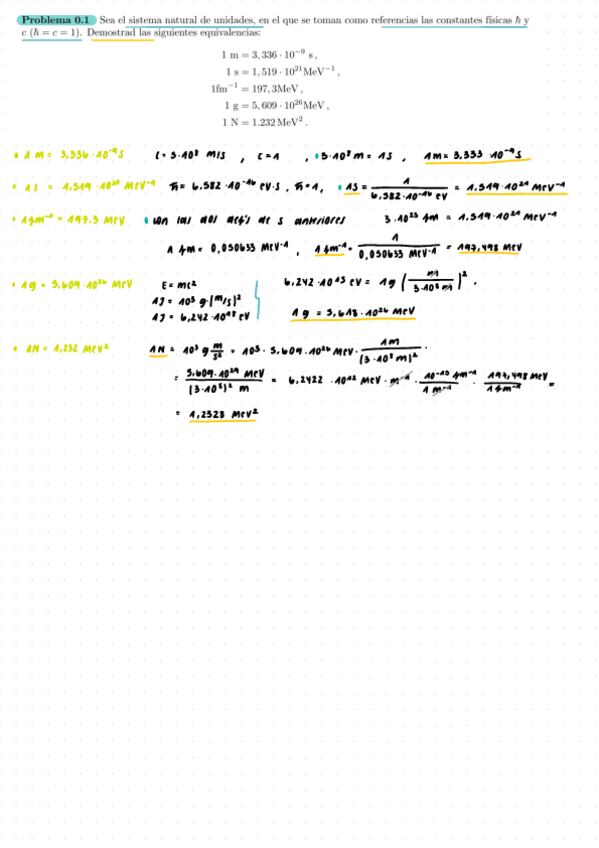 Problema 0.1 Sea el sistema natural de unidades, en el que se toman como referencias las constantes físicas ℏ y
c (ℏ = c = 1). Demostrad las siguientes equivalencias:
1 m = 3,336 · 10⁻⁹ s ,
1 s = 1,519 · 10²¹ MeV⁻¹ ,
1fm⁻¹ = 197,3MeV ,
1 g = 5,609 · 10²⁶ MeV ,
1 N = 1.232 MeV² .
• 1 m = 3,336 · 10⁻⁹ s c = 3·10⁸ m/s , c = 1 , • 3·10⁸ m = 1s , 1m = 3,333 10⁻⁹ s
• 1s = 1,519 · 10²¹ MeV⁻¹ ℏ = 6.582 · 10⁻¹⁶ eV·s , ℏ = 1 , • 1s = 1 / 6,582 · 10⁻¹⁶ eV = 1,519 · 10²¹ MeV⁻¹
• 1 fm⁻¹ = 197.3 MeV • con las dos deg's de s anteriores 3 · 10²³ fm = 1,519 · 10²¹ MeV⁻¹
1 fm = 0,050633 MeV⁻¹ , 1 fm⁻¹ = 1 / 0,050633 MeV⁻¹ = 197,498 MeV
• 1g = 5,609 · 10²⁶ MeV E = mc² 6,242 · 10¹⁵ eV = 1g ( m / 3·10⁸ m )² .
1J = 10³ g (m/s)²
1J = 6,242 · 10¹⁸ eV 1g = 5,618 · 10²⁶ MeV
• 1N = 1,232 MeV² 1N = 10³ g m/s² = 10³ · 5,609 · 10²⁶ MeV · 1m / (3·10⁸ m)² .
= 5,609 · 10²⁹ MeV / (3·10⁸)² m = 6,2422 · 10¹² MeV · m⁻¹ · 10⁻¹⁵ fm⁻¹ / 1 m⁻¹ · 197,498 MeV / 1 fm⁻¹ =
= 1,2328 MeV²